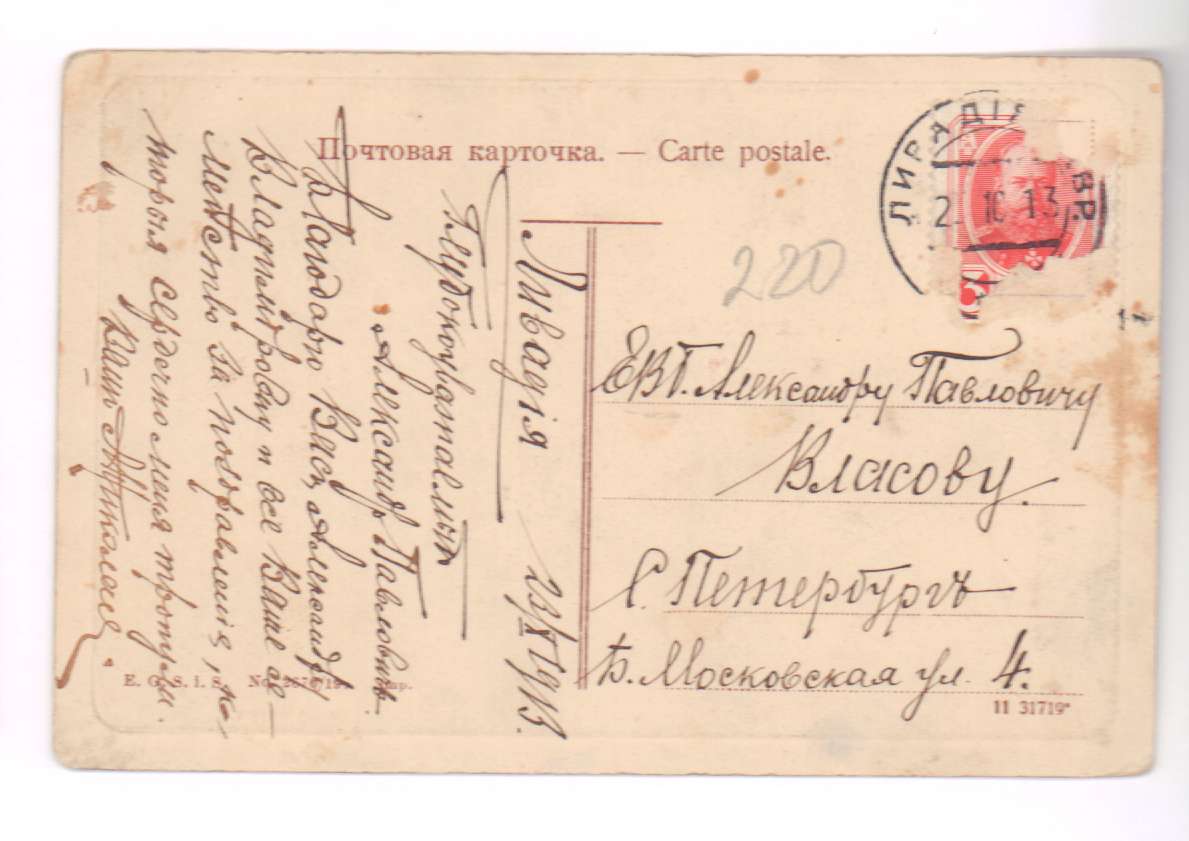 Почтовая карточка. — Carte postale.
220
ЛИВАДІЯ
2. 10 13
Ливадія 23/X 1913.
Глубокоуважаемый
Александръ Павловичъ.
Благодарю Васъ, Александр
Владиміровну и все Ваше се-
мейство за поздравленія, ко-
торыя сердечно меня тронули.
Вашъ
Е.В.Б. Александру Павловичу
Власову.
С. Петербургъ
Б. Московская ул. 4.
11 31719*